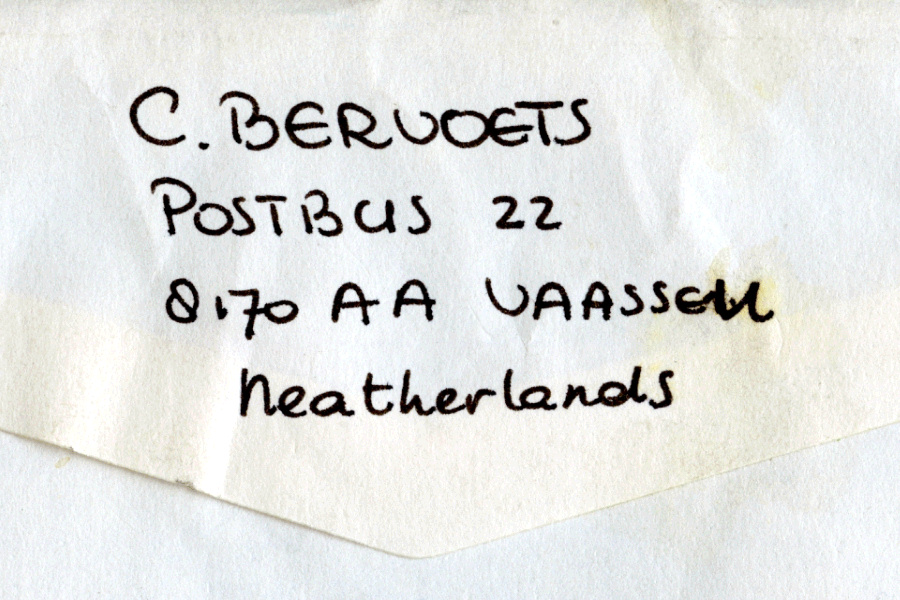 C. BERVOETS
POSTBUS 22
8170 AA VAASSEN
Neatherlands